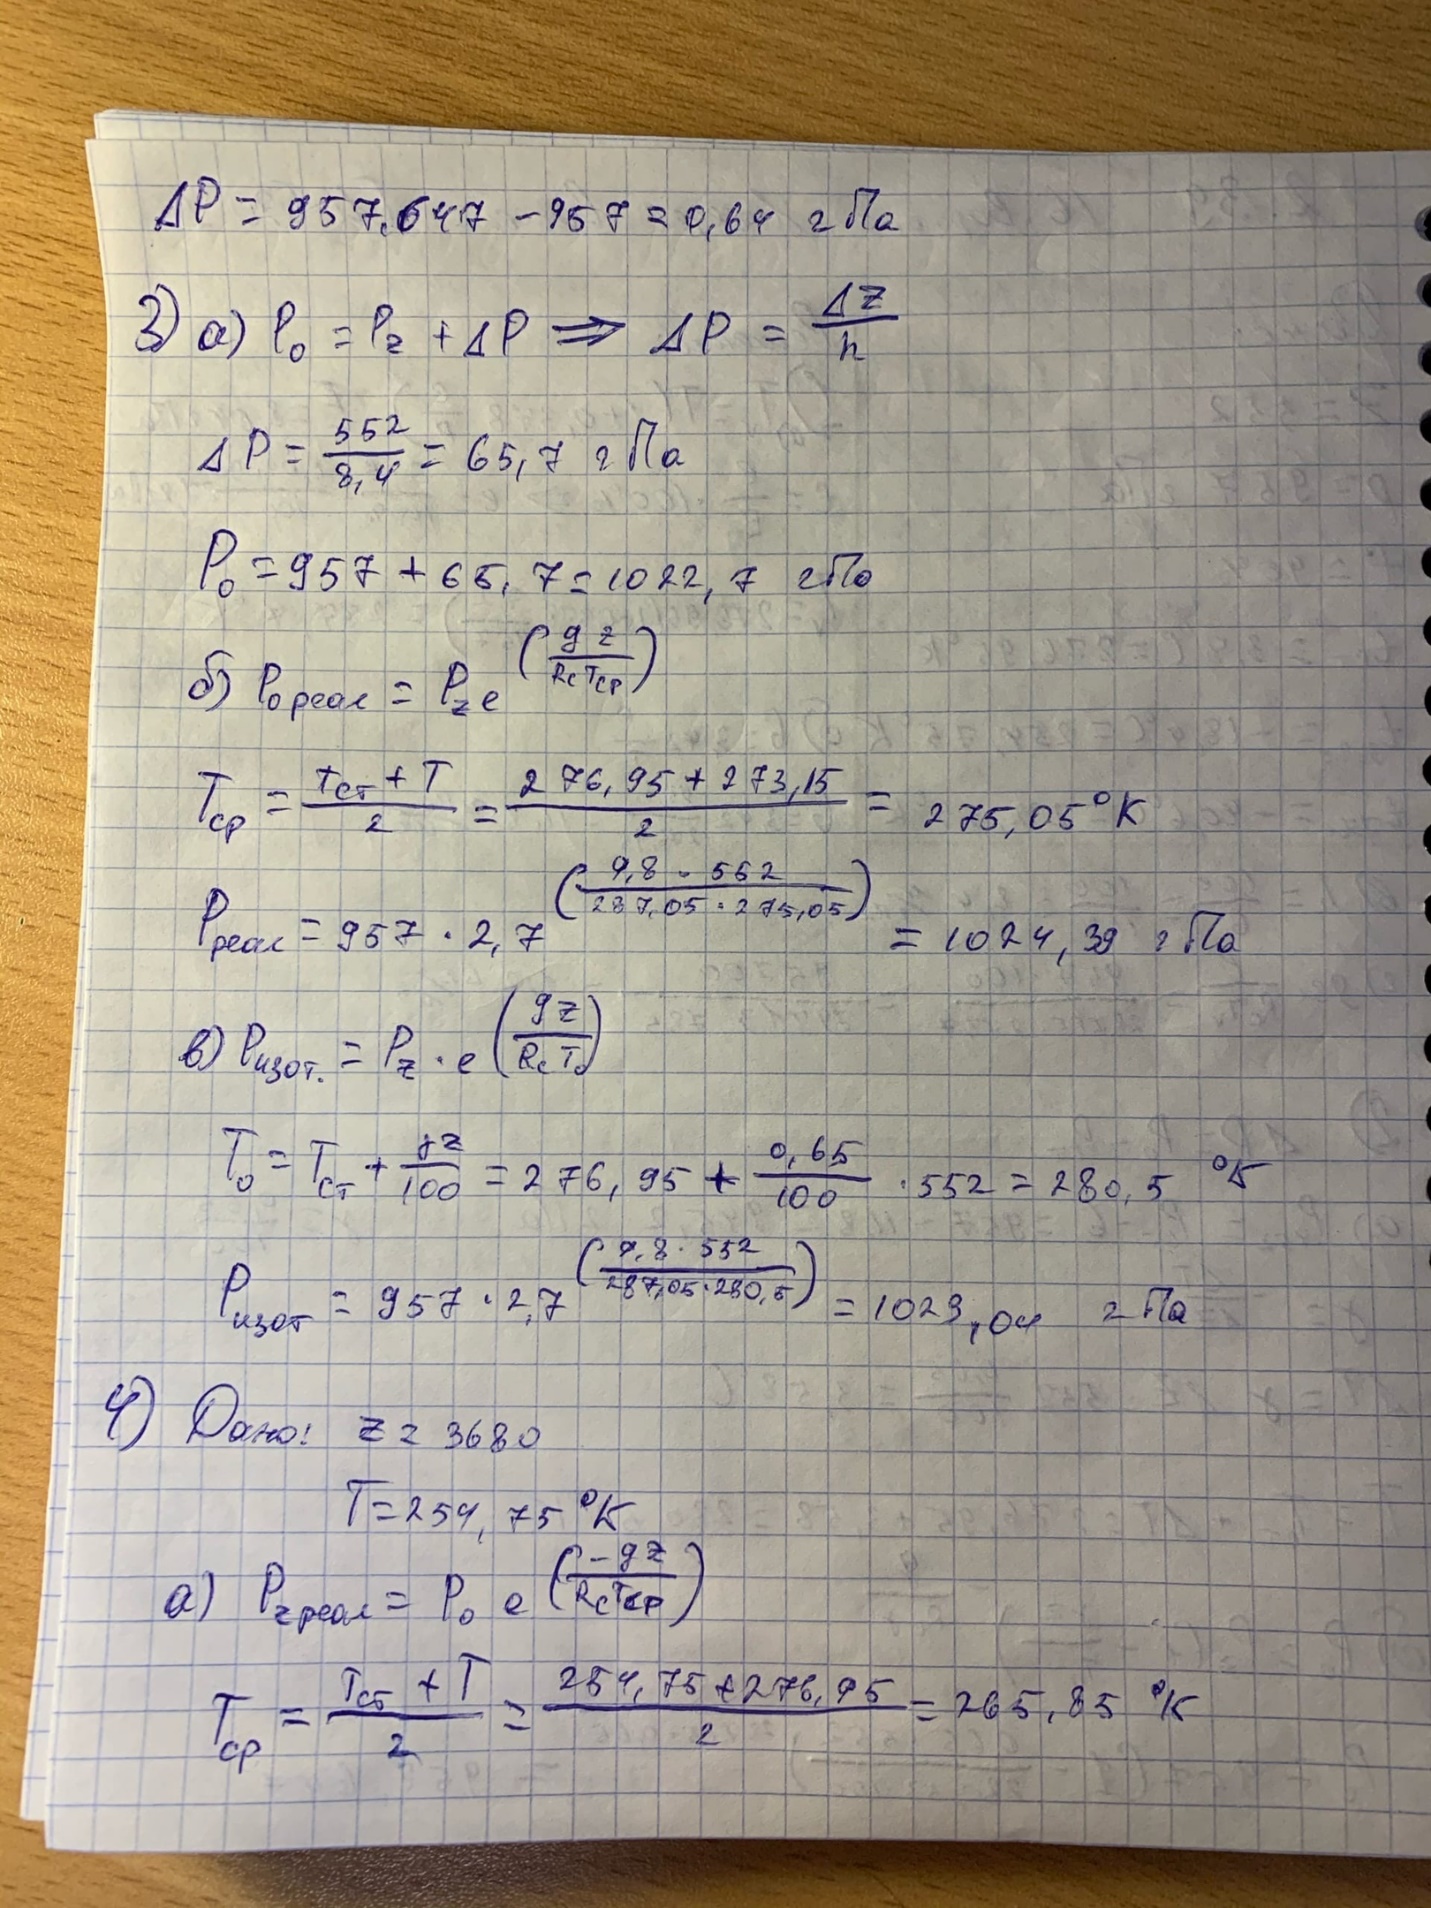 ΔP = 957,647 - 957 = 0,64 гПа
3) а) P₀ = P_z + ΔP ⇒ ΔP = Δz/h
ΔP = 552/8,4 = 65,7 гПа
P₀ = 957 + 65,7 = 1022,7 гПа
б) P₀ реал = P_z e^(gz/(R_c T_ср))
T_ср = (t_ст + T)/2 = (276,95 + 273,15)/2 = 275,05 °К
P_реал = 957 · 2,7^(9,8 · 552/(287,05 · 275,05)) = 1024,39 гПа
в) P_изот. = P_z · e^(gz/(R_c T₀))
T₀ = T_ст + γz/100 = 276,95 + 0,65/100 · 552 = 280,5 °К
P_изот = 957 · 2,7^(9,8 · 552/(287,05 · 280,5)) = 1023,04 гПа
4) Дано: z = 3680
T = 254,75 °К
а) P_z реал = P₀ e^(-gz/(R_c T_ср))
T_ср = (T_ст + T)/2 = (254,75 + 276,95)/2 = 265,85 °К